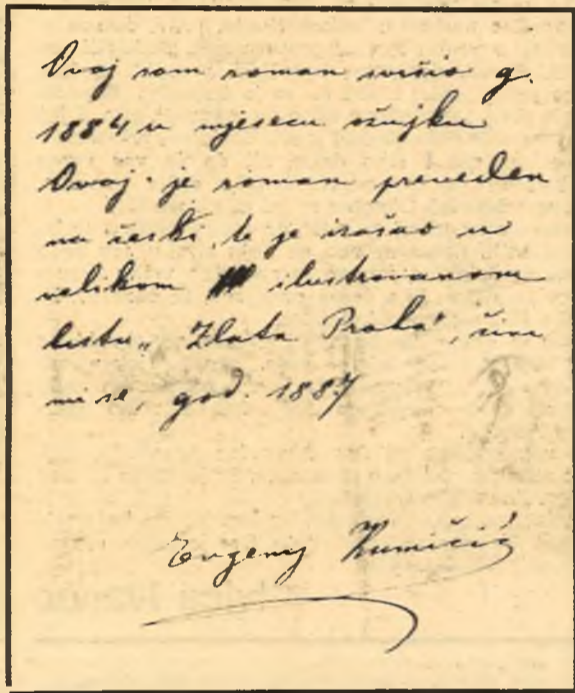 Ovaj sam roman svršio g.
1884 u mjesecu ožujku
Ovaj je roman preveden
na češki, te je izašao u
velikom ilustrovanom
listu „Zlata Praha", čini
mi se, god. 1887
Evgenij Kumičić